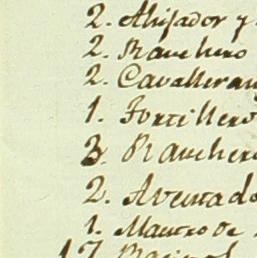 2. Ahijador y
2. Ranchero
2. Cavalleran
1. Fortillero
3. Ranchero
2. Aventado
1. Maestro de
17